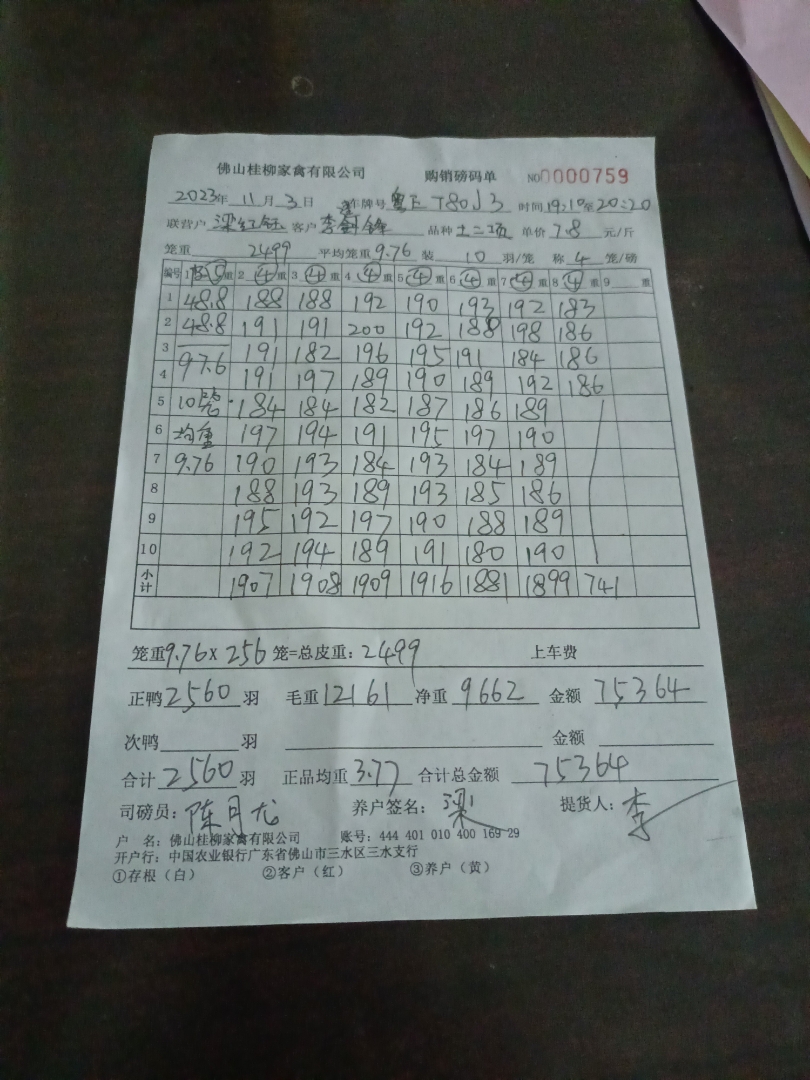 佛山桂柳家禽有限公司 购销磅码单 NO0000759
2023年 11月 3日 车牌号 粤E T80J3 时间19:10至20:20
联营户 梁红钰 客户 李 锋 品种 土二项 单价 7.8 元/斤
笼重 2499 平均笼重 9.76 装 10 羽/笼 称 4 笼/磅
编号 1 重 2 ④ 重 3 ④ 重 4 ④ 重 5 ④ 重 6 ④ 重 7 ④ 重 8 ④ 重 9 重
1 48.8 188 188 192 190 193 192 183
2 48.8 191 191 200 192 188 198 186
3 97.6 191 182 196 195 191 184 186
4 191 197 189 190 189 192 186
5 10笼 184 184 182 187 186 189
6 均重 197 194 191 195 197 190
7 9.76 190 193 184 193 184 189
8 188 193 189 193 185 186
9 195 192 197 190 188 189
10 192 194 189 191 180 190
小计 1907 1908 1909 1916 1881 1899 741
笼重9.76×256笼=总皮重：2499 上车费
正鸭2560羽 毛重12161 净重9662 金额75364
次鸭 羽 金额
合计2560羽 正品均重3.77 合计总金额 75364
司磅员：陈月龙 养户签名：梁 提货人：李
户 名：佛山桂柳家禽有限公司 账号：444 401 010 400 169 29
开户行：中国农业银行广东省佛山市三水区三水支行
①存根（白） ②客户（红） ③养户（黄）